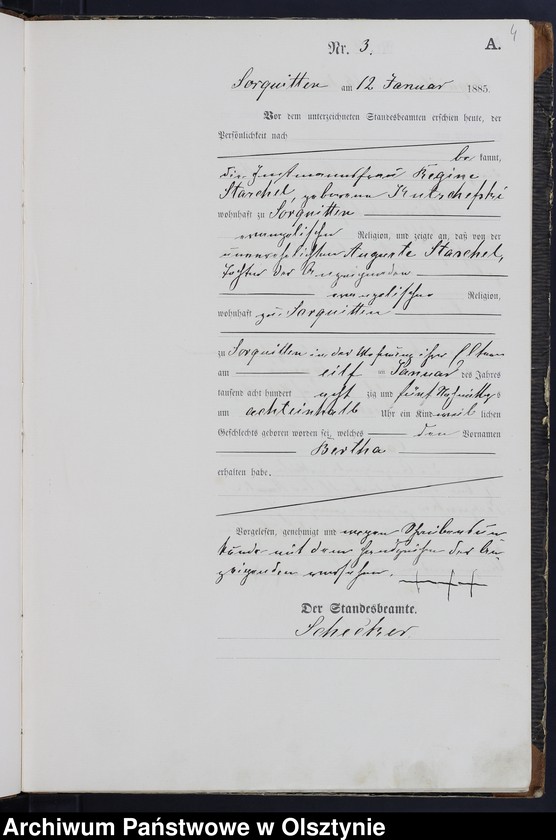 4
Nr. 3. A.
Sorquitten am 12 Januar 1885.
Vor dem unterzeichneten Standesbeamten erschien heute, der
Persönlichkeit nach
be kannt,
die Instmannsfrau Regine
Starchel, geborene
wohnhaft zu Sorquitten
evangelischer Religion, und zeigte an, daß von der
unverehelichten Auguste Starchel,
Tochter der Anzeigenden
evangelischer Religion,
wohnhaft zu Sorquitten
zu Sorquitten in der Wohnung ihrer Eltern
am eilf ten Januar des Jahres
tausend acht hundert acht zig und fünf Nachmittags
um achteinhalb Uhr ein Kind weib lichen
Geschlechts geboren worden sei, welches den Vornamen
Bertha
erhalten habe.
Vorgelesen, genehmigt und wegen Schreibensun
kunde mit dem Handzeichen der An-
zeigenden versehen. +++
Der Standesbeamte.
Schecker
Archiwum Państwowe w Olsztynie